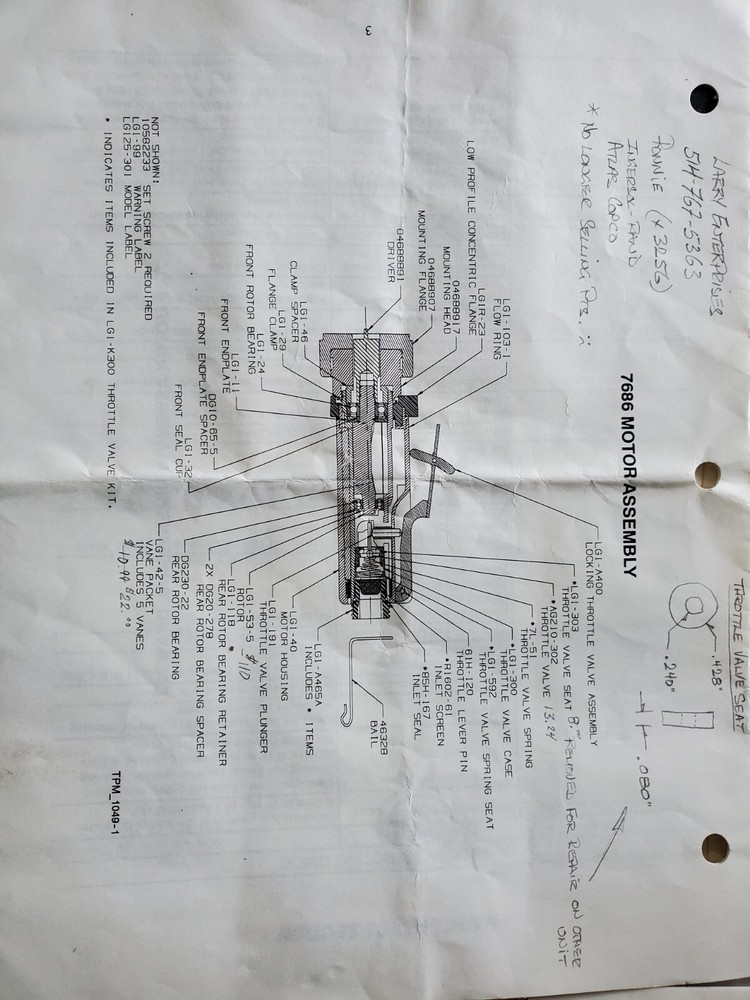 LARRY ENTERPRISES
514-767-5363
(x3256)
INGERSOL-RAND
ATLAS COPCO
* NO LONGER SELLING PTS.
THROTTLE VALVE SEAT
.428"
.240"
.080"
7686 MOTOR ASSEMBLY
LG1-A400
LOCKING THROTTLE VALVE ASSEMBLY
•LG1-303
THROTTLE VALVE SEAT 8.00 REMOVED FOR REPAIR ON OTHER UNIT
•AG210-302
THROTTLE VALVE 13.24
•7L-51
THROTTLE VALVE SPRING
•LG1-300
THROTTLE VALVE CASE
•LG1-592
THROTTLE VALVE SPRING SEAT
61H-120
THROTTLE LEVER PIN
•R1602-61
INLET SCREEN
•85H-167
INLET SEAL
46328
BAIL
LG1-103-1
FLOW RING
LG1R-23
LOW PROFILE CONCENTRIC FLANGE
04688917
MOUNTING HEAD
04688907
MOUNTING FLANGE
04688891
DRIVER
LG1-46
CLAMP SPACER
LG1-29
FLANGE CLAMP
LG1-24
FRONT ROTOR BEARING
LG1-11
FRONT ENDPLATE
DG10-65-5
FRONT ENDPLATE SPACER
LG1-32
FRONT SEAL CUP
LG1-A465A
INCLUDES • ITEMS
LG1-40
MOTOR HOUSING
LG1-191
THROTTLE VALVE PLUNGER
LG1-53-5 $110
ROTOR
LG1-118
REAR ROTOR BEARING RETAINER
2X DG20-278
REAR ROTOR BEARING SPACER
DG230-22
REAR ROTOR BEARING
LG1-42-5
VANE PACKET
INCLUDES 5 VANES
NOT SHOWN:
10582233 SET SCREW 2 REQUIRED
LG1-99 WARNING LABEL
LG125-301 MODEL LABEL
• INDICATES ITEMS INCLUDED IN LG1-K300 THROTTLE VALVE KIT.
TPM_1049-1
3